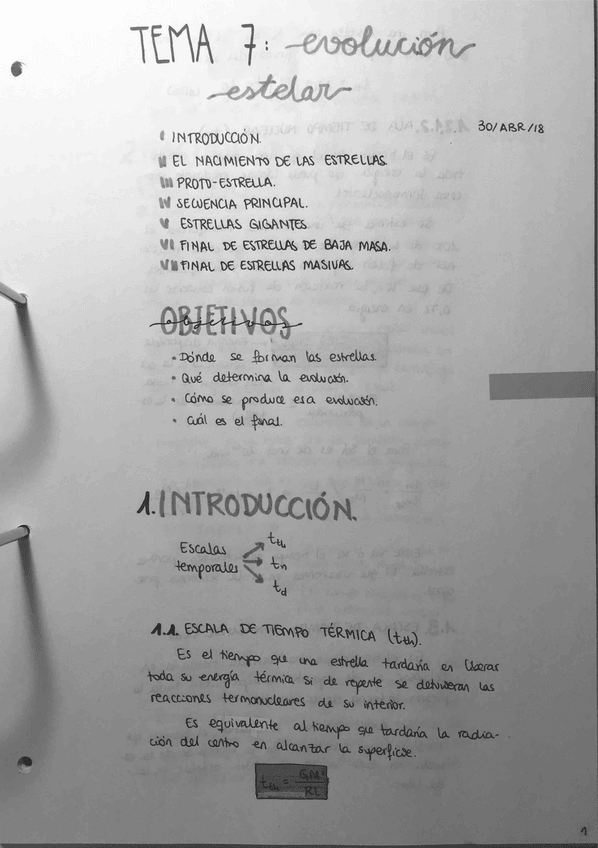 TEMA 7: evolución
estelar
30/ABR/18
I INTRODUCCIÓN.
II EL NACIMIENTO DE LAS ESTRELLAS.
III PROTO-ESTRELLA.
IV SECUENCIA PRINCIPAL.
V ESTRELLAS GIGANTES.
VI FINAL DE ESTRELLAS DE BAJA MASA.
VII FINAL DE ESTRELLAS MASIVAS.
OBJETIVOS
objetivos
• Dónde se forman las estrellas.
• Qué determina la evolución.
• Cómo se produce esa evolución.
• Cuál es el final.
1. INTRODUCCIÓN.
Escalas
temporales
t_th
t_n
t_d
1.1. ESCALA DE TIEMPO TÉRMICA (t_th).
Es el tiempo que una estrella tardaría en liberar
toda su energía térmica si de repente se detuvieran las
reacciones termonucleares de su interior.
Es equivalente al tiempo que tardaría la radia-
ción del centro en alcanzar la superficie.
t_th = GM²/RL
1